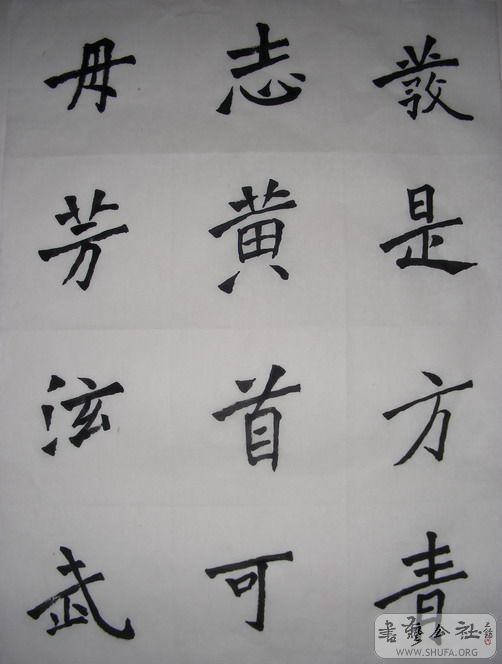 發是方青
志黄首可
芳泫武
書藝公社
WWW.SHUFA.ORG